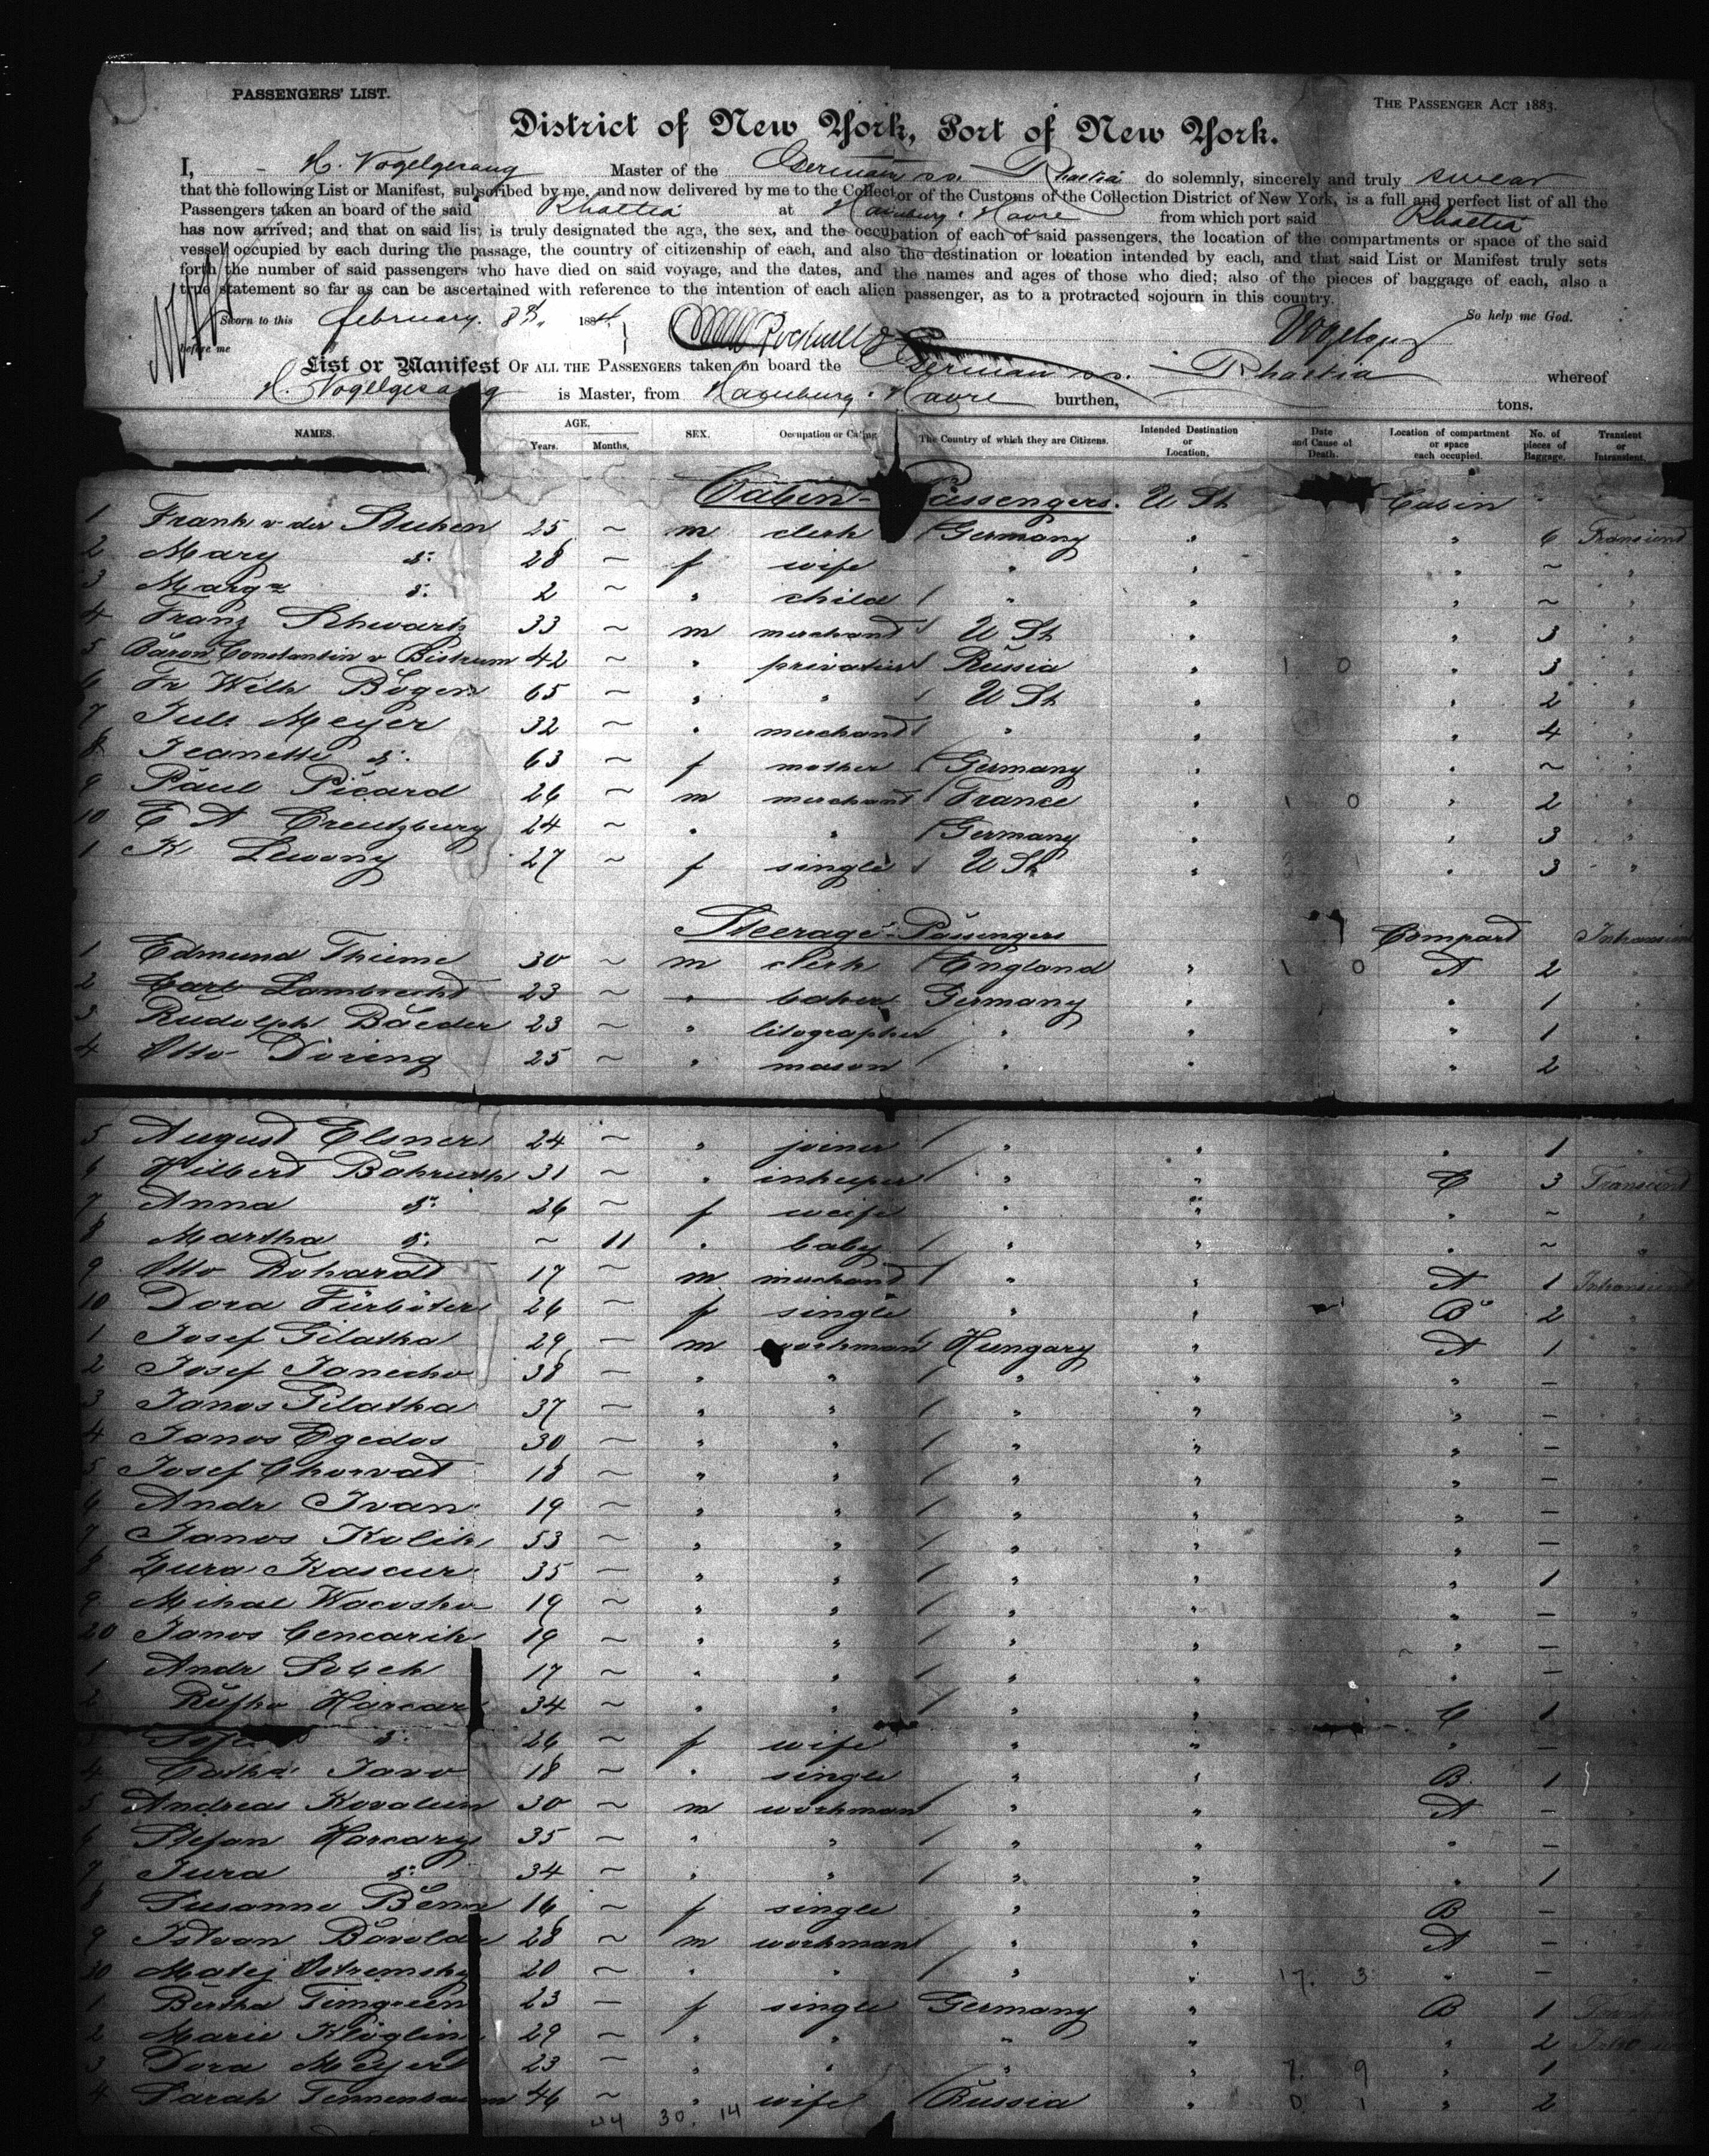 PASSENGERS' LIST.
THE PASSENGER ACT 1883.
District of New York, Port of New York.
I, H. Vogelgesang Master of the German ss. Rhaetia do solemnly, sincerely and truly swear
that the following List or Manifest, subscribed by me, and now delivered by me to the Collector of the Customs of the Collection District of New York, is a full and perfect list of all the
Passengers taken on board of the said Rhaetia at Hamburg & Havre from which port said Rhaetia
has now arrived; and that on said list is truly designated the age, the sex, and the occupation of each of said passengers, the location of the compartments or space of the said
vessel occupied by each during the passage, the country of citizenship of each, and also the destination or location intended by each, and that said List or Manifest truly sets
forth the number of said passengers who have died on said voyage, and the dates, and the names and ages of those who died; also of the pieces of baggage of each, also a
true statement so far as can be ascertained with reference to the intention of each alien passenger, as to a protracted sojourn in this country.
Sworn to this february. 8th. 1884, So help me God.
before me
List or Manifest OF ALL THE PASSENGERS taken on board the German ss. Rhaetia whereof
H. Vogelgesang is Master, from Hamburg & Havre burthen, tons.
NAMES. AGE. Years. Months. SEX. Occupation or Calling The Country of which they are Citizens. Intended Destination or Location. Date and Cause of Death. Location of compartment or space each occupied. No. of pieces of Baggage. Transient or Intransient.
Cabin-Passengers. U St Cabin
1 Frank v der Stucken 25 ~ m clerk Germany " " 6 Transient
2 Mary d: 28 ~ f wife " " " ~ "
3 Marg d: 2 ~ " child " " " ~ "
4 Franz Schwarz 33 ~ m merchand U St " " 3 "
5 Baron Constantin v Bistrum 42 ~ " privatier Russia " 1 0 " 3 "
6 Fr Wilh Bögen 65 ~ " " U St " " 2 "
7 Juls Meyer 32 ~ " merchand " " " 4 "
8 Jeanette d: 63 ~ f mother Germany " " ~ "
9 Paul Picard 26 ~ m merchant France " 1 0 " 2 "
10 E A Creutzburg 24 ~ " " Germany " " 3 "
1 K Lewony 27 ~ f single U St " " 3 "
Steerage-Passengers Compart Intransient
1 Edmund Thieme 30 ~ m clerk England " 1 0 A 2
2 Carl Lambrecht 23 ~ " baker Germany " " 1
3 Rudolph Baeder 23 ~ " litographer " " " 1
4 Otto Döring 25 ~ " mason " " " 2
5 August Elsner 24 ~ " joiner " " " 1
6 Hilbert Bahrusth 31 ~ " inkeeper " " C 3 Transient
7 Anna d: 26 ~ f weife " " " ~ "
8 Martha d: ~ 11 " baby " " " ~ "
9 Otto Rohardt 17 ~ m merchand " " A 1 Intransient
10 Dora Fürböter 26 ~ f single " " B 2
1 Josef Pilatka 29 — m workman Hungary " A 1
2 Josef Janecko 38 — " " " " " —
3 Janos Pilatka 37 ~ " " " " " —
4 Janos Egedos 30 ~ " " " " " —
5 Josef Chorvat 18 ~ " " " " " —
6 Andr Ivan 19 ~ " " " " " —
7 Janos Kolik 53 ~ " " " " " —
8 Zura Kascur 35 ~ " " " " " 1
9 Mihal Wacosko 19 ~ " " " " " —
20 Janos Cencarik 19 ~ " " " " " —
1 Andr 17 ~ " " " " " —
2 Harcar 34 ~ " " " " C 1
d: 26 ~ f wife " " " —
4 Catha Javo 18 ~ " single " " B 1
5 Andreas 30 ~ m workman " " A —
6 Stefan Harcary 35 ~ " " " " " —
7 Jura d: 34 ~ " " " " " 1
8 Susanne 16 ~ f single " " B —
9 Istvan 28 ~ m workman " " A —
30 Matej Ostremsky 20 ~ " " " " 17. 3 " —
1 Bertha Timgreen 23 — f single Germany " B 1
2 Marie Klöglin 29 ~ " " " " " 2
3 Dora Meyer 23 ~ " " " " 7. 9 " 1
4 Sarah Tennenbaum 46 ~ " wife Russia " 0 1 " 2
44 30. 14